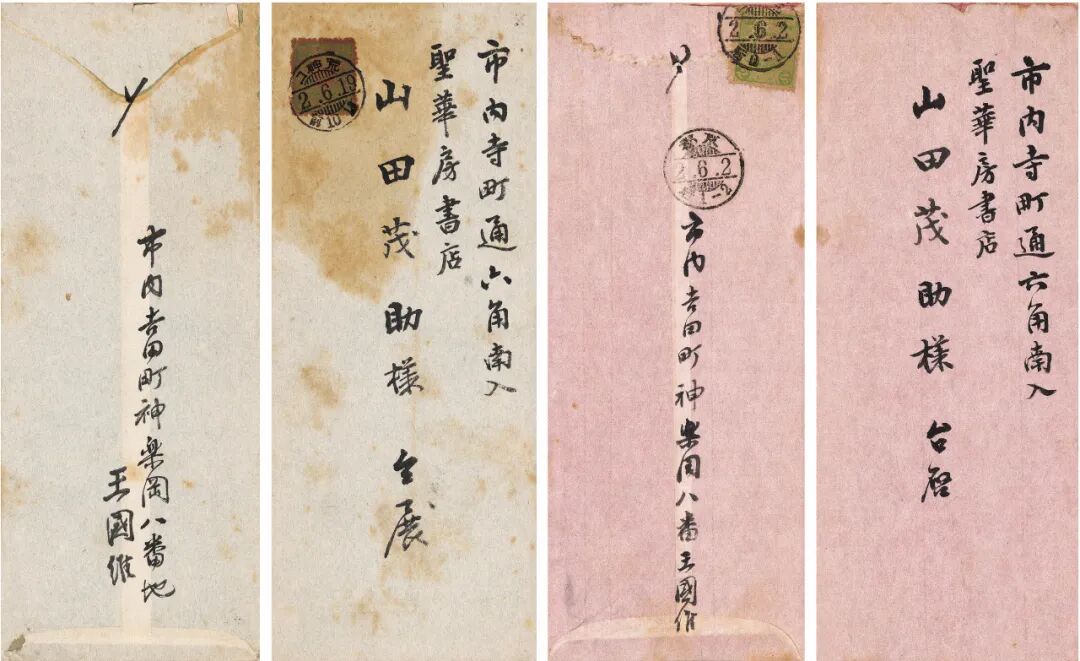 市内吉田町神楽岡八番地
王國維
市内寺町通六角南入
聖華房書店
山田茂助様 台展
2.6.19
市内吉田町神楽岡八番王國維
2.6.2
2.6.2
市内寺町通六角南入
聖華房書店
山田茂助様 台啓